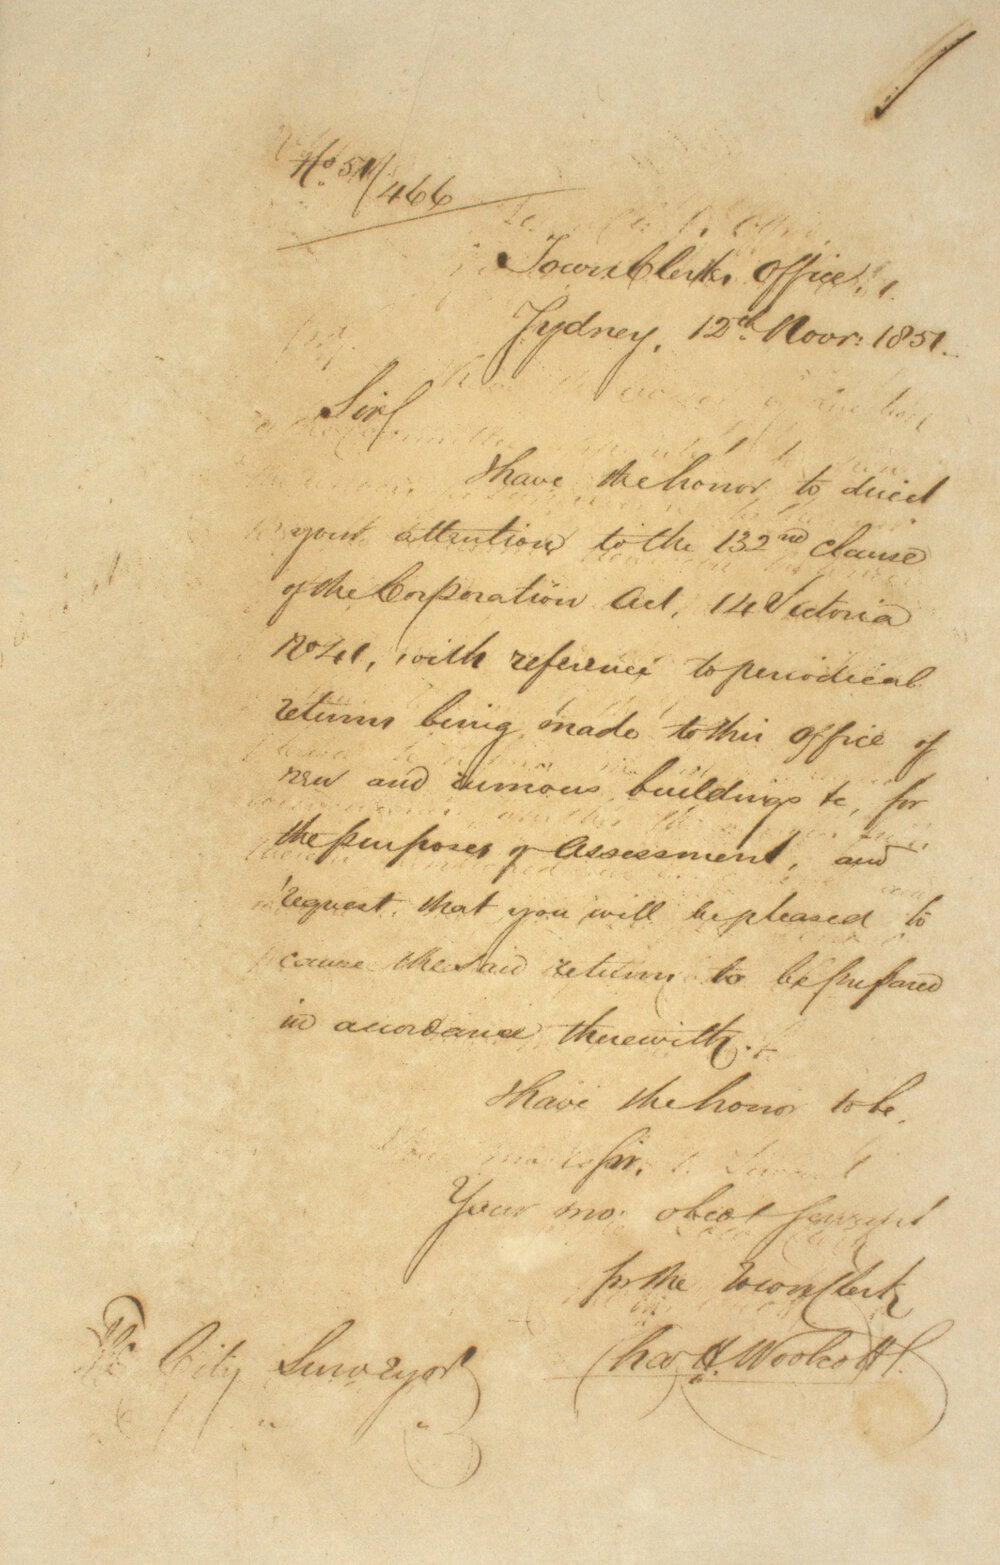 No 51/466
Town Clerks Office,
Sydney, 12th Novr: 1851.
Sir
I have the honor to direct
your attention to the 132nd clause
of the Corporation Act, 14 Victoria
No 41, with reference to periodical
returns being made to this Office of
new and ruinous buildings &c, for
the purposes of Assessment, and
request that you will be pleased to
cause the said returns to be prepared
in accordance therewith.
I have the honor to be,
Sir,
Your mo: obedt servant
for the Town Clerk
Chas H. Woolcott
The City Surveyor